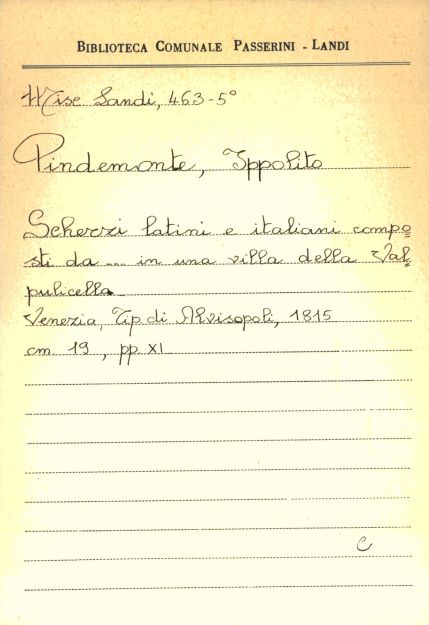 BIBLIOTECA COMUNALE PASSERINI - LANDI
Misc Landi, 463-5°
Pindemonte, Ippolito
Scherzi latini e italiani compo
sti da .... in una villa della Val
pulicella
Venezia, Tip. di Alvisopoli, 1815
cm. 19, pp. XI
C